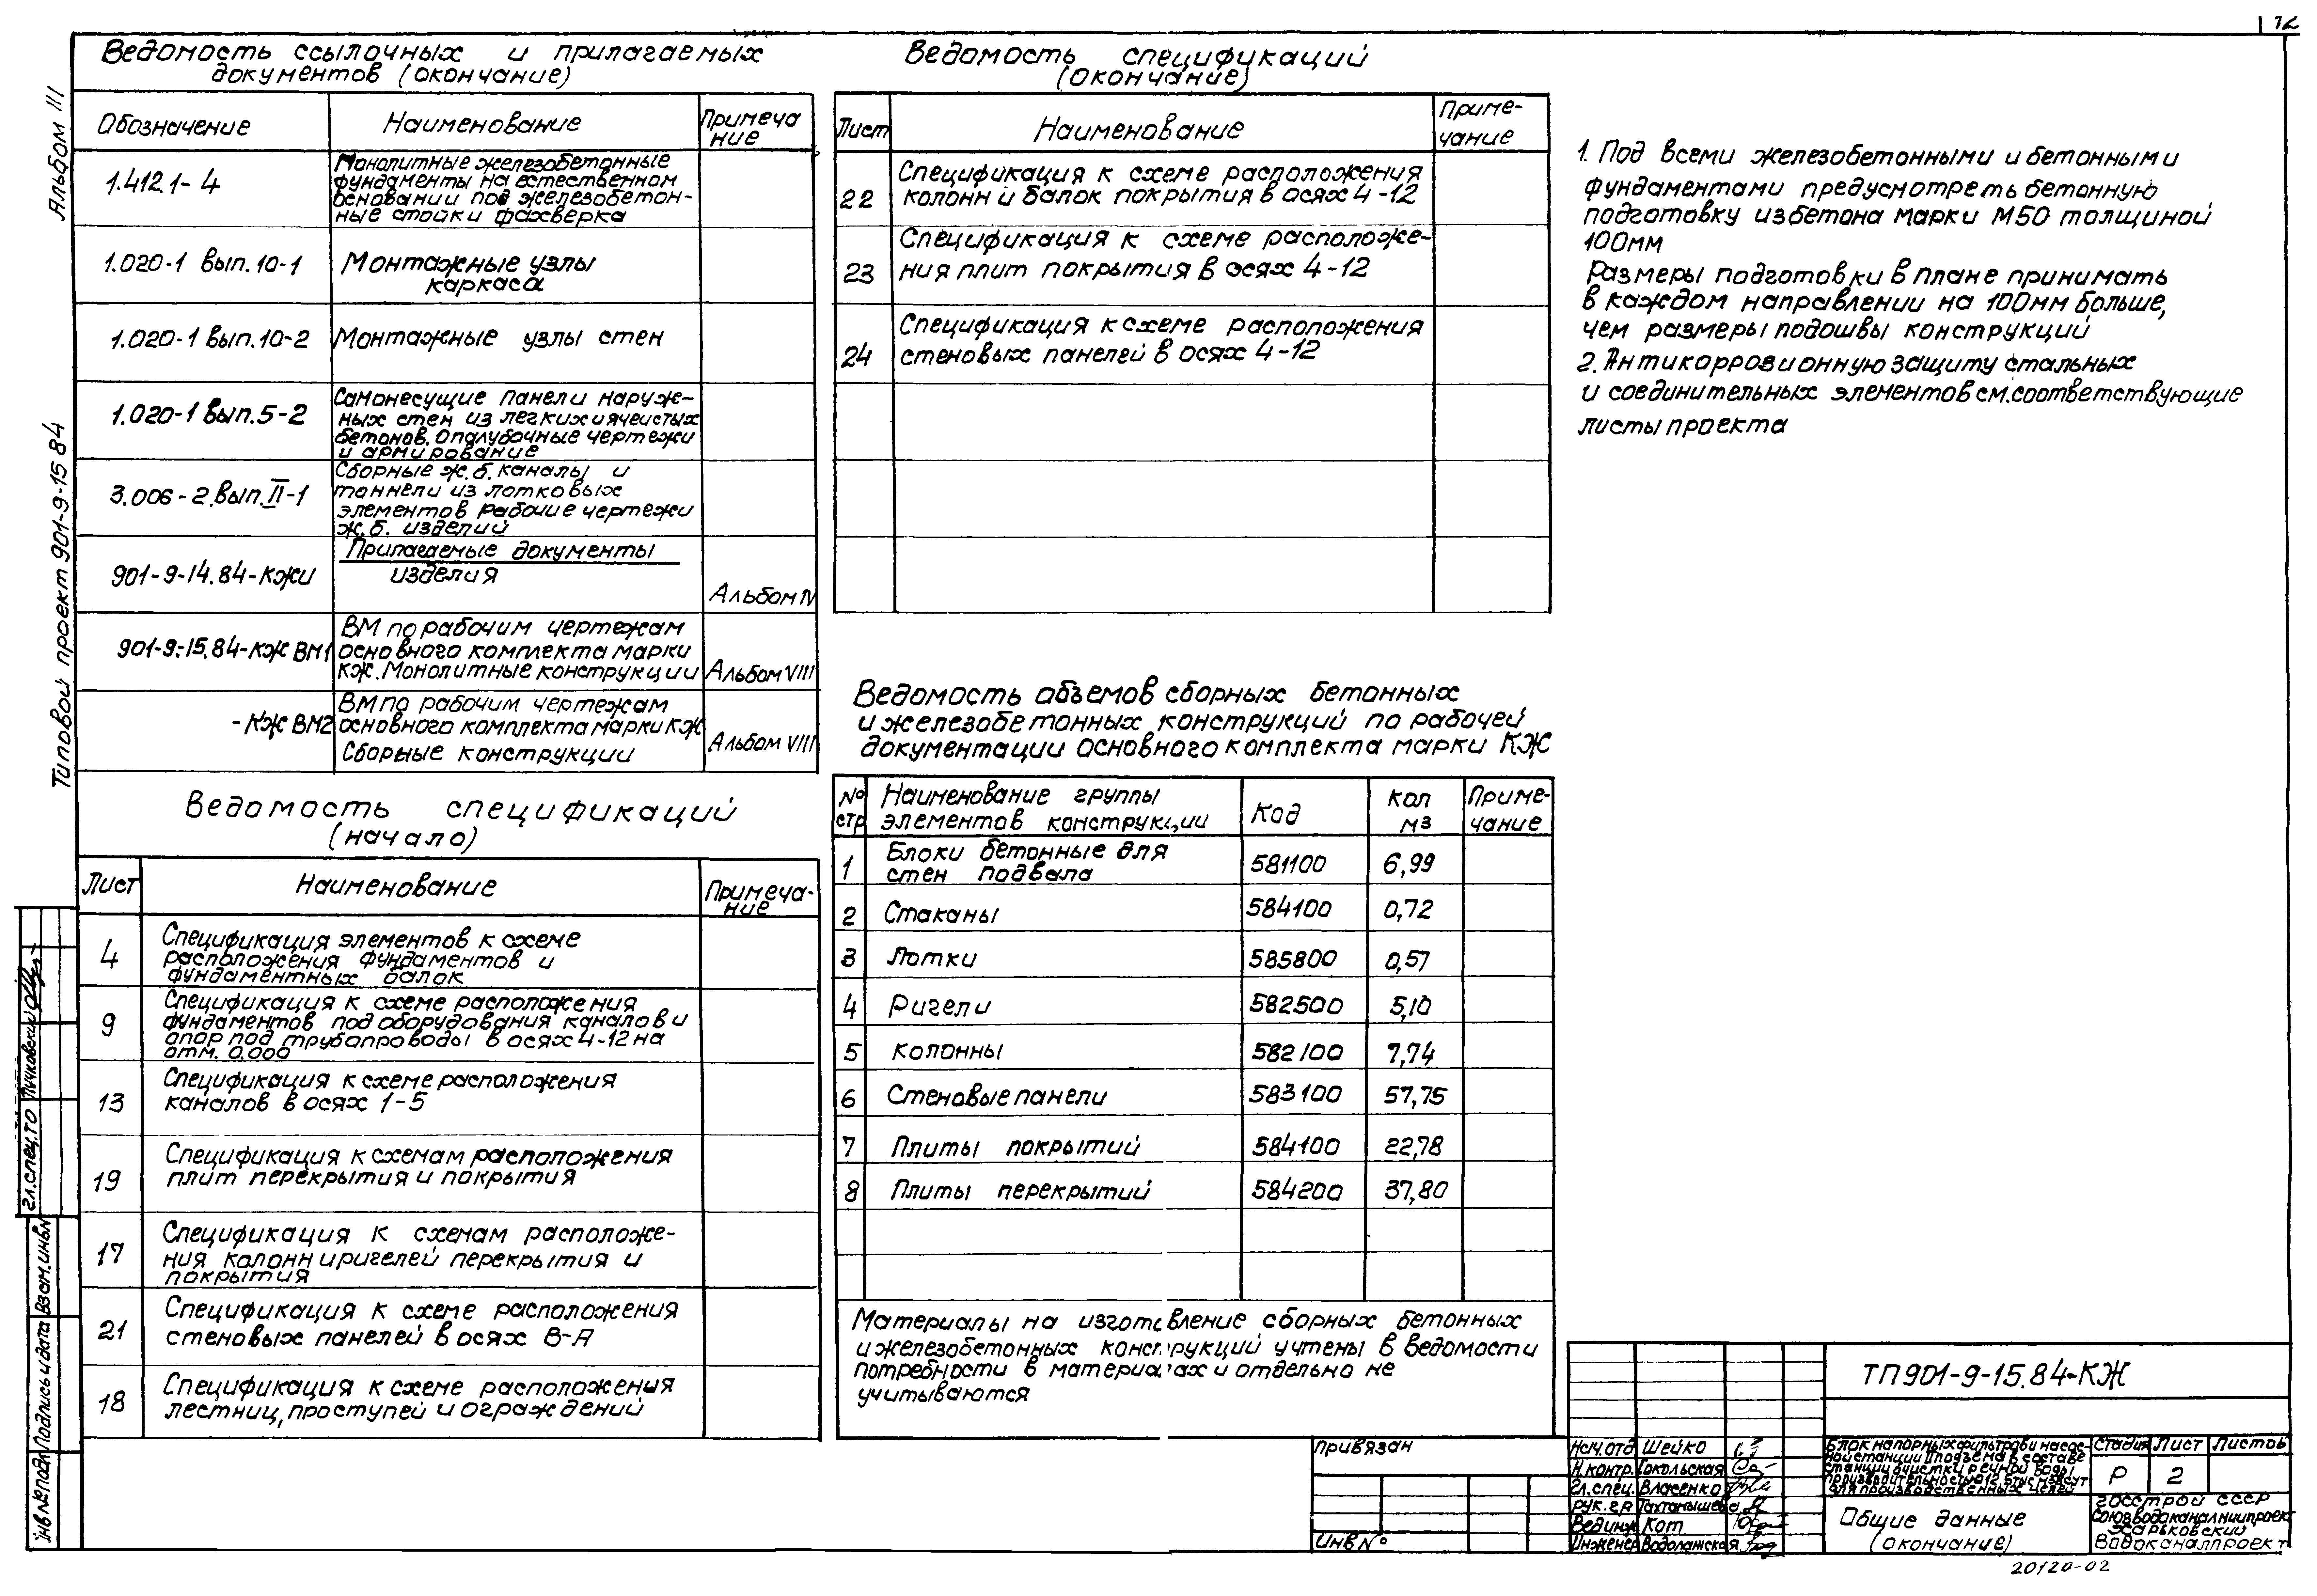 12
Альбом III
Типовой проект 901-9-15 84
Ведомость ссылочных и прилагаемых
документов (окончание)
Обозначение
Наименование
Примеча
ние
1.412.1-4
Монолитные железобетонные
фундаменты на естественном
основании под железобетон-
ные стойки фахверка
1.020-1 вып.10-1
Монтажные узлы
каркаса
1.020-1 вып.10-2
Монтажные узлы стен
1.020-1 вып.5-2
Самонесущие панели наруж-
ных стен из легких и ячеистых
бетонов. Опалубочные чертежи
и армирование
3.006-2.вып.II-1
Сборные ж.б. каналы и
тоннели из лотковых
элементов рабочие чертежи
ж.б. изделий
Прилагаемые документы
901-9-14.84-КЖИ
изделия
Альбом IV
901-9-15.84-КЖ ВМ1
ВМ по рабочим чертежам
основного комплекта марки
КЖ. Монолитные конструкции
Альбом VIII
-КЖ ВМ2
ВМ по рабочим чертежам
основного комплекта марки КЖ
Сборные конструкции
Альбом VIII
Ведомость спецификаций
(начало)
Лист
Наименование
Примеча-
ние
4
Спецификация элементов к схеме
расположения фундаментов и
фундаментных балок
9
Спецификация к схеме расположения
фундаментов под оборудования каналов и
опор под трубопроводы в осях 4-12 на
отм. 0.000
13
Спецификация к схеме расположения
каналов в осях 1-5
19
Спецификация к схемам расположения
плит перекрытия и покрытия
17
Спецификация к схемам расположе-
ния колонн и ригелей перекрытия и
покрытия
21
Спецификация к схеме расположения
стеновых панелей в осях В-А
18
Спецификация к схеме расположения
лестниц, проступей и ограждений
Ведомость спецификаций
(окончание)
Лист
Наименование
Приме-
чание
22
Спецификация к схеме расположения
колонн и балок покрытия в осях 4-12
23
Спецификация к схеме расположе-
ния плит покрытия в осях 4-12
24
Спецификация к схеме расположения
стеновых панелей в осях 4-12
Ведомость объемов сборных бетонных
и железобетонных конструкций по рабочей
документации основного комплекта марки КЖ
№ стр
Наименование группы
элементов конструкции
Код
Кол
м3
Приме-
чание
1 Блоки бетонные для
стен подвала 581100 6,99
2 Стаканы 584100 0,72
3 Лотки 585800 0,57
4 Ригели 582500 5,10
5 Колонны 582100 7,74
6 Стеновые панели 583100 57,75
7 Плиты покрытий 584100 22,78
8 Плиты перекрытий 584200 37,80
Материалы на изготовление сборных бетонных
и железобетонных конструкций учтены в ведомости
потребности в материалах и отдельно не
учитываются
1. Под всеми железобетонными и бетонными
фундаментами предусмотреть бетонную
подготовку из бетона марки М50 толщиной
100мм
Размеры подготовки в плане принимать
в каждом направлении на 100мм больше,
чем размеры подошвы конструкций
2. Антикоррозионную защиту стальных
и соединительных элементов см. соответствующие
листы проекта
Гл.спец.ТО Пучковский
Инв№подл Подпись и дата Взам.инв№
Привязан
Инв №
Нач.отд Шейко
Н.контр. Сокольская
Гл.спец. Власенко
Рук.гр Тахтамышева
Вед.инж Кот
Инженер Водолажская
ТП901-9-15.84-КЖ
Блок напорных фильтров и насос-
ной станции II подъема в составе
станции очистки речной воды
производительностью 12,5тыс м3/сут
для производственных целей
Стадия Лист Листов
Р 2
Общие данные
(окончание)
Госстрой СССР
Союзводоканалниипроект
Харьковский
Водоканалпроект
20120-02